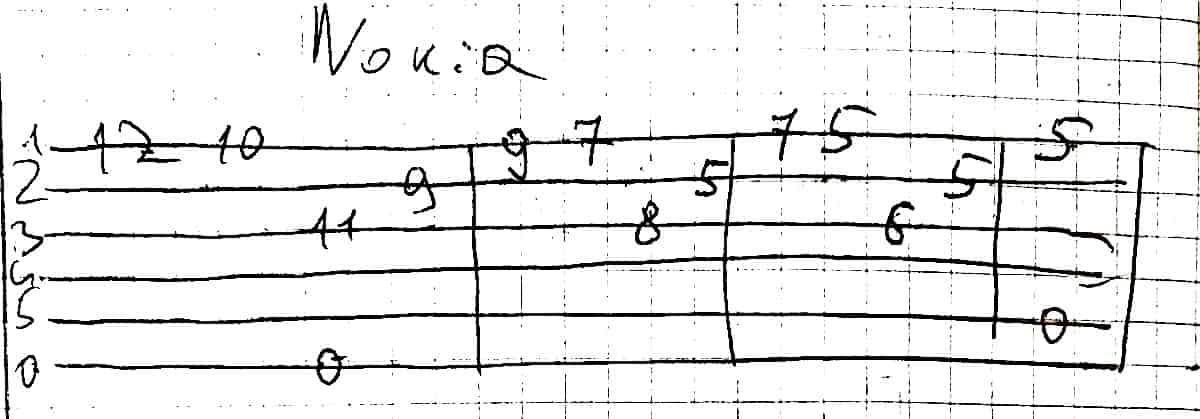 Nokia
1 12 10 9 7 7 5 5
2 9 5 5
3 11 8 6
4
5 0
0 0